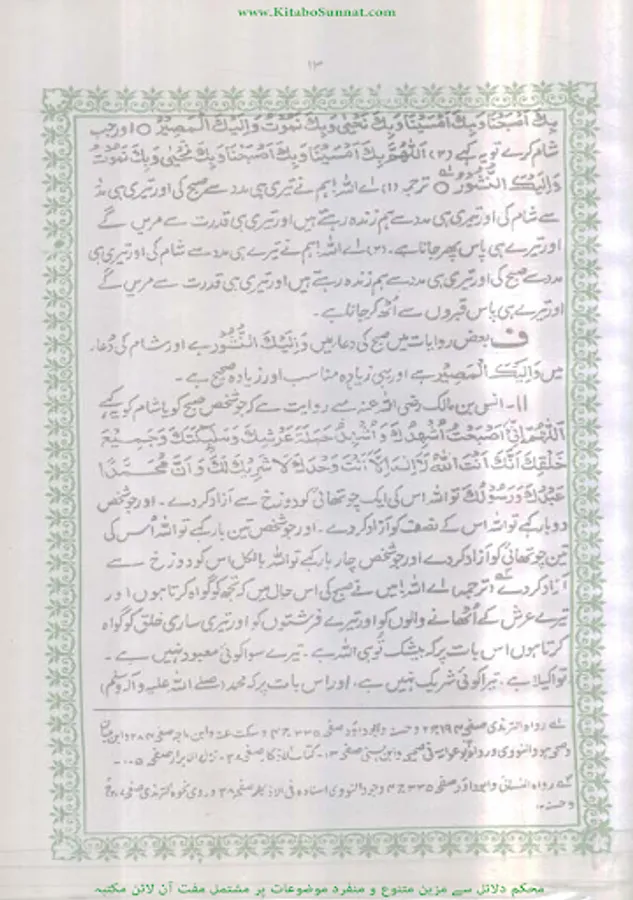 www.KitaboSunnat.com
۱۳
بِكَ اَصْبَحْنَا وَبِكَ اَمْسَيْنَا وَبِكَ نَحْيٰى وَبِكَ نَمُوْتُ وَاِلَيْكَ الْمَصِيْرُ ○ اور جب
شام کرے تو یہ کہے (۲) اَللّٰهُمَّ بِكَ اَمْسَيْنَا وَبِكَ اَصْبَحْنَا وَبِكَ نَحْيٰى وَبِكَ نَمُوْتُ
وَاِلَيْكَ النُّشُوْرُ ○ ترجمہ (۱) اے اللہ! ہم نے تیری ہی مدد سے صبح کی اور تیری ہی مدد
سے شام کی اور تیری ہی مدد سے ہم زندہ رہتے ہیں اور تیری ہی قدرت سے مریں گے
اور تیرے ہی پاس پھر جانا ہے۔ (۲) اے اللہ! ہم نے تیرے ہی مدد سے شام کی اور تیری ہی
مدد سے صبح کی اور تیری ہی مدد سے ہم زندہ رہتے ہیں اور تیری ہی قدرت سے مریں گے
اور تیرے ہی پاس قبروں سے اُٹھ کر جانا ہے۔
ف بعض روایات میں صبح کی دعا میں وَاِلَيْكَ النُّشُوْرُ ہے اور شام کی دُعا
میں وَاِلَيْكَ الْمَصِيْرُ ہے اور یہی زیادہ مناسب اور زیادہ صحیح ہے۔
۱۱۔ انس بن مالک رضی اللہ عنہ سے روایت ہے کہ جو شخص صبح کو یا شام کو کہے
اَللّٰهُمَّ اِنِّىْ اَصْبَحْتُ اُشْهِدُكَ وَاُشْهِدُ حَمَلَةَ عَرْشِكَ وَمَلٰٓئِكَتَكَ وَجَمِيْعَ
خَلْقِكَ اَنَّكَ اَنْتَ اللّٰهُ لَا اِلٰهَ اِلَّا اَنْتَ وَحْدَكَ لَا شَرِيْكَ لَكَ وَاَنَّ مُحَمَّدًا
عَبْدُكَ وَرَسُوْلُكَ تو اللہ اس کی ایک چوتھائی کو دوزخ سے آزاد کر دے۔ اور جو شخص
دو بار کہے تو اللہ اس کے نصف کو آزاد کر دے۔ اور جو شخص تین بار کہے تو اللہ اُس کی
تین چوتھائی کو آزاد کر دے اور جو شخص چار بار کہے تو اللہ بالکل اس کو دوزخ سے
آزاد کر دے (ترجمہ) اے اللہ! میں نے صبح کی اس حال میں کہ تجھ کو گواہ کرتا ہوں اور
تیرے عرش کے اُٹھانے والوں کو اور تیرے فرشتوں کو اور تیری ساری خلق کو گواہ
کرتا ہوں اس بات پر کہ بیشک تو ہی اللہ ہے۔ تیرے سوا کوئی معبود نہیں ہے۔
تو اکیلا ہے۔ تیرا کوئی شریک نہیں ہے، اور اس بات پر کہ محمد (صلی اللہ علیہ وآلہ وسلم)
لے رواہ الترمذی صفحہ وحسنہ وابوداؤد صفحہ ۳۳۵ ج۴ وسکت عنہ وابن ماجہ صفحہ ۲۸۴ وابن حبان
وصححہ وجود النووی ورواہ ابو عوانہ فی صحیحہ وابن سنی صفحہ ۱۳۔ کتاب الاذکار صفحہ ۳۸۔ نزل الابرار صفحہ
رواہ النسائی وابوداؤد صفحہ ۳۳۵ ج۴ وجود النووی اسنادہ فی الاذکار صفحہ ۳۸ وروی نحوہ الترمذی صفحہ
وحسنہ۔
محکم دلائل سے مزین متنوع و منفرد موضوعات پر مشتمل مفت آن لائن مکتبہ